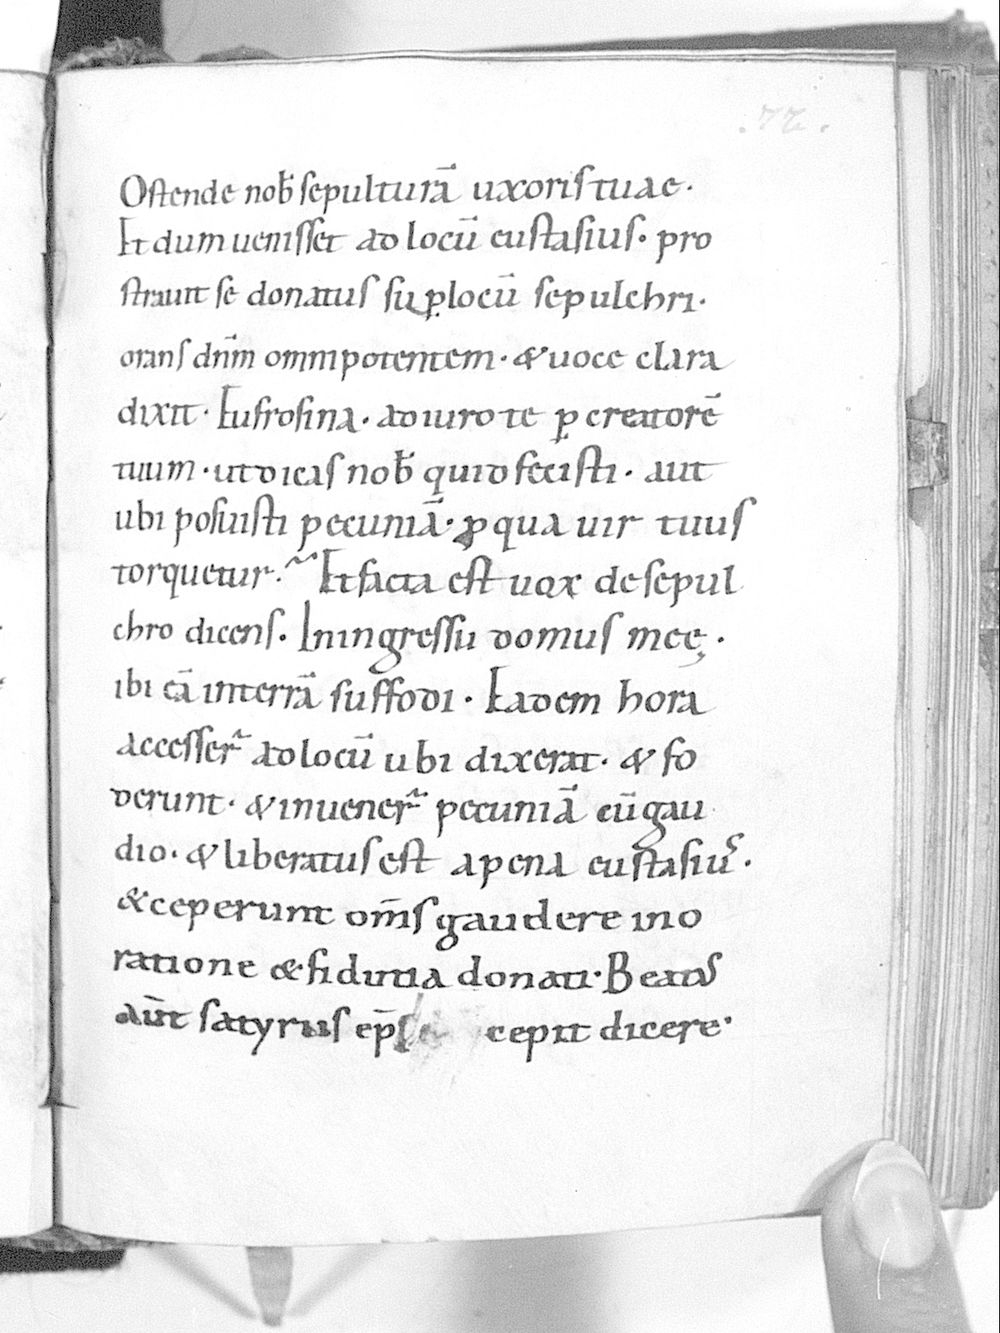 .72.
Ostende nob̄ sepulturā uxoris tuae.
Et dum uenisset ad locū eustasius. pro
strauit se donatus sup̱ locū sepulchri.
orans dn̄m omnipotentem. & uoce clara
dixit. Eufrosina. adiuro te p̱ creatorē
tuum. ut dicas nob̄ quid fecisti. aut
ubi posuisti pecuniā. ꝓ qua uir tuus
torquetur.~ Et facta est uox de sepul
chro dicens. In ingressu domus meę.
ibi eā in terrā suffodi. Eadem hora
accesser̄ ad locū ubi dixerat. & fo
derunt. & inuener̄ pecuniā cū gau
dio. & liberatus est a pena eustasius̄.
& ceperunt om̄s gaudere in o
ratione & fiducia donati. Beatus
aūt satyrus ep̄s cepit dicere.